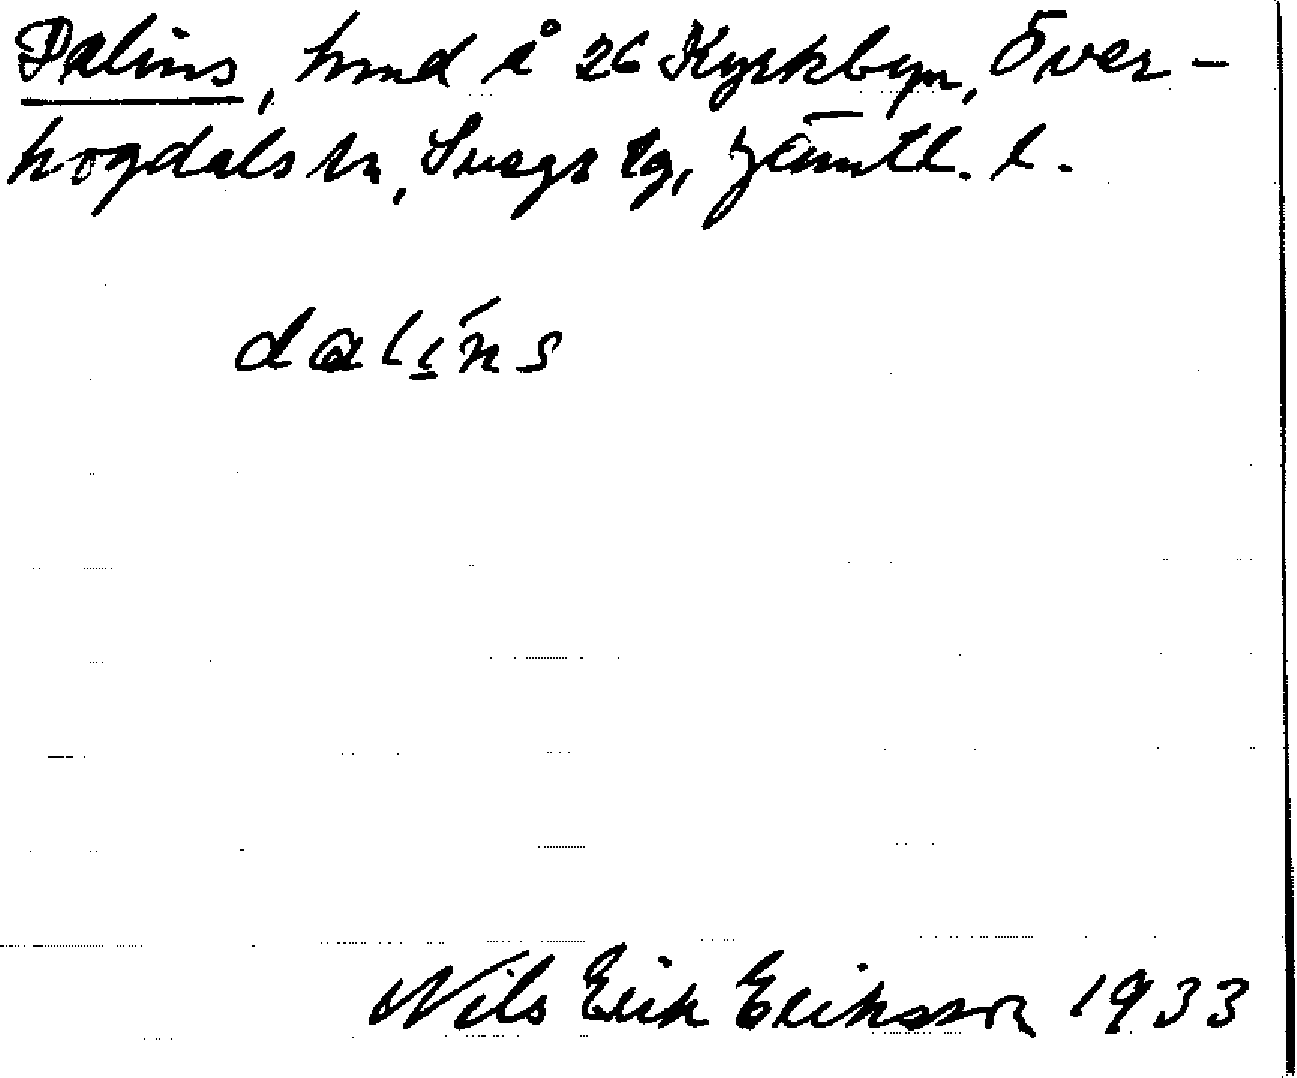 Dalins, hmd å 26 Kyrkbyn, Över-
hogdals sn, Svegs tg, Jämtl. l.
dalińs
Nils Erik Eriksson 1933